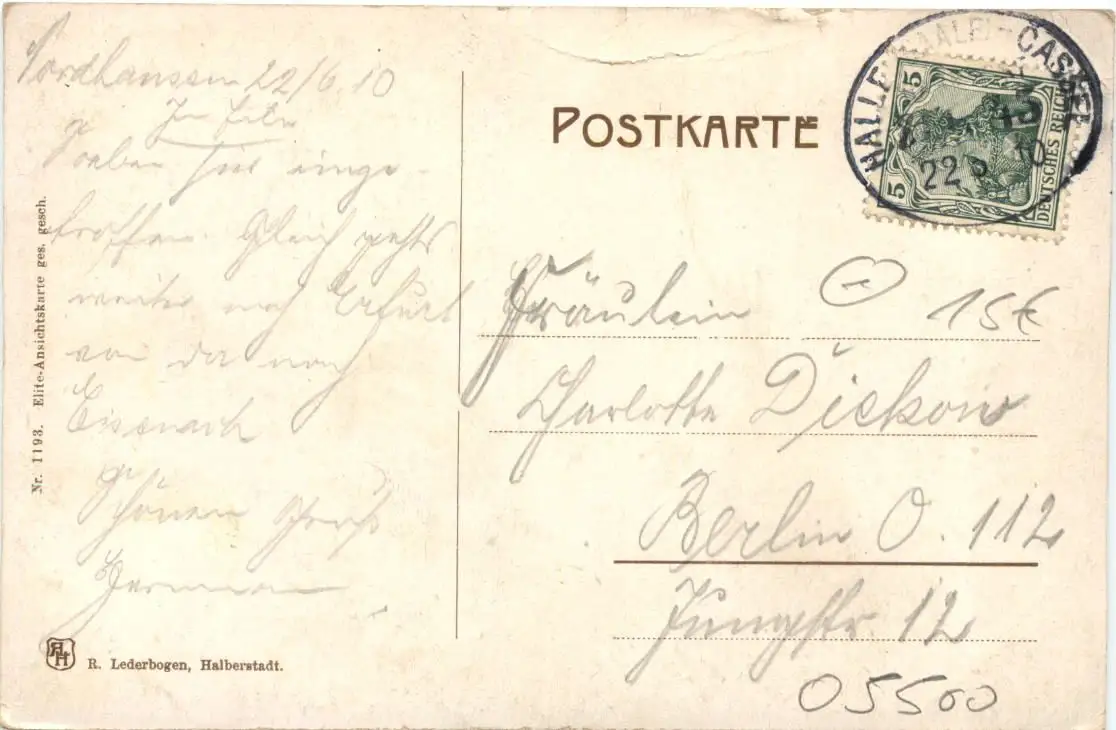 Nordhaussen 22/6.10
In Eile
Soeben hier einge-
troffen. Gleich gehts
weiter nach Erfurt
von da nach
Eisenach
Schönen Gruß
Hermann
Nr. 1193. Elite-Ansichtskarte ges. gesch.
R. Lederbogen, Halberstadt.
POSTKARTE
HALLE (SAALE)-CASSEL
22 6 10
5
5
DEUTSCHES REICH
15€
Fräulein
Charlotte Dickow
Berlin O. 112
Jungstr 12
05500